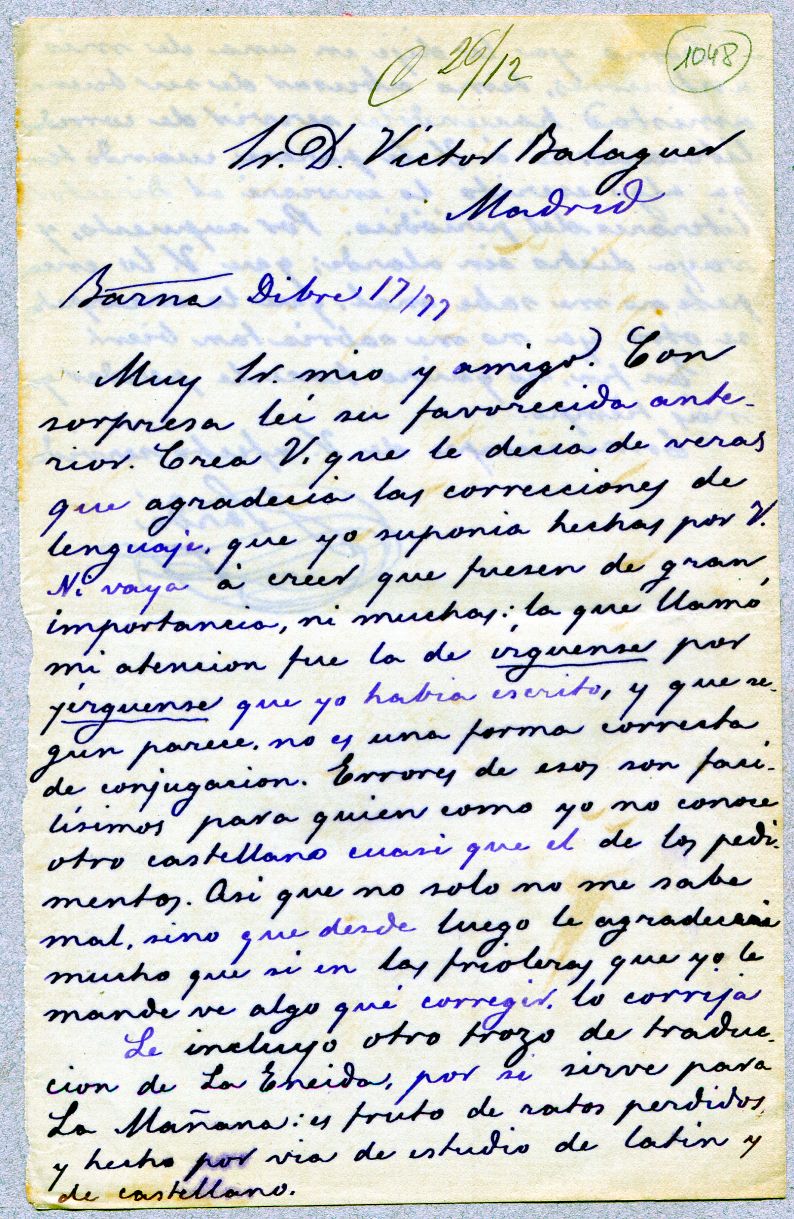 C 26/12
1048
Sr. D. Víctor Balaguer
Madrid
Barna Dibre 17/77
Muy Sr. mio y amigo. Con
sorpresa leí su favorecida ante-
rior. Crea V. que le decia de veras
que agradecia las correcciones de
lenguaje, que yo suponia hechas por V.
Ni vaya á creer que fuesen de gran
importancia, ni muchas: la que llamó
mi atencion fue la de irguense por
yérguense que yo habia escrito, y que se-
gun parece, no es una forma correcta
de conjugacion. Errores de esos son faci-
lísimos para quien como yo no conoce
otro castellano cuasi que el de los pedi-
mentos. Asi que no solo no me sabe
mal, sino que desde luego le agradeceria
mucho que si en las frioleras que yo le
mande ve algo qué corregir, lo corrija
Le incluyo otro trozo de traduc-
cion de La Eneida, por si sirve para
La Mañana: es fruto de ratos perdidos,
y hecho por via de estudio de latin y
de castellano.